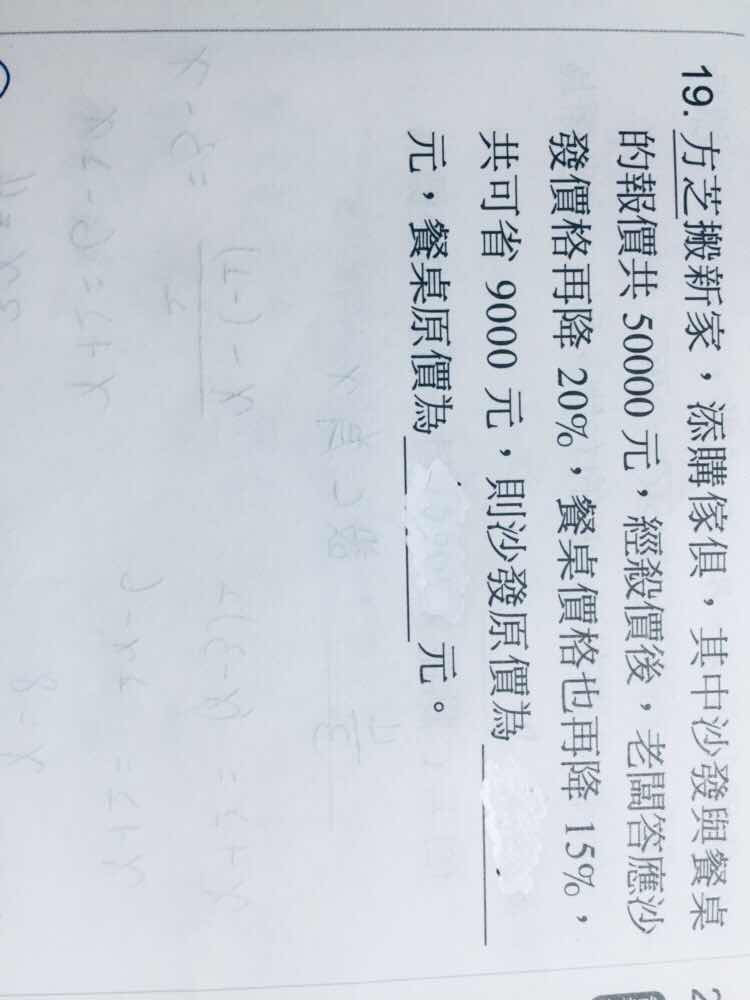 19. 方芝搬新家，添購傢俱，其中沙發與餐桌
的報價共 50000 元，經殺價後，老闆答應沙
發價格再降 20%，餐桌價格也再降 15%，
共可省 9000 元，則沙發原價為
元，餐桌原價為 元。
2